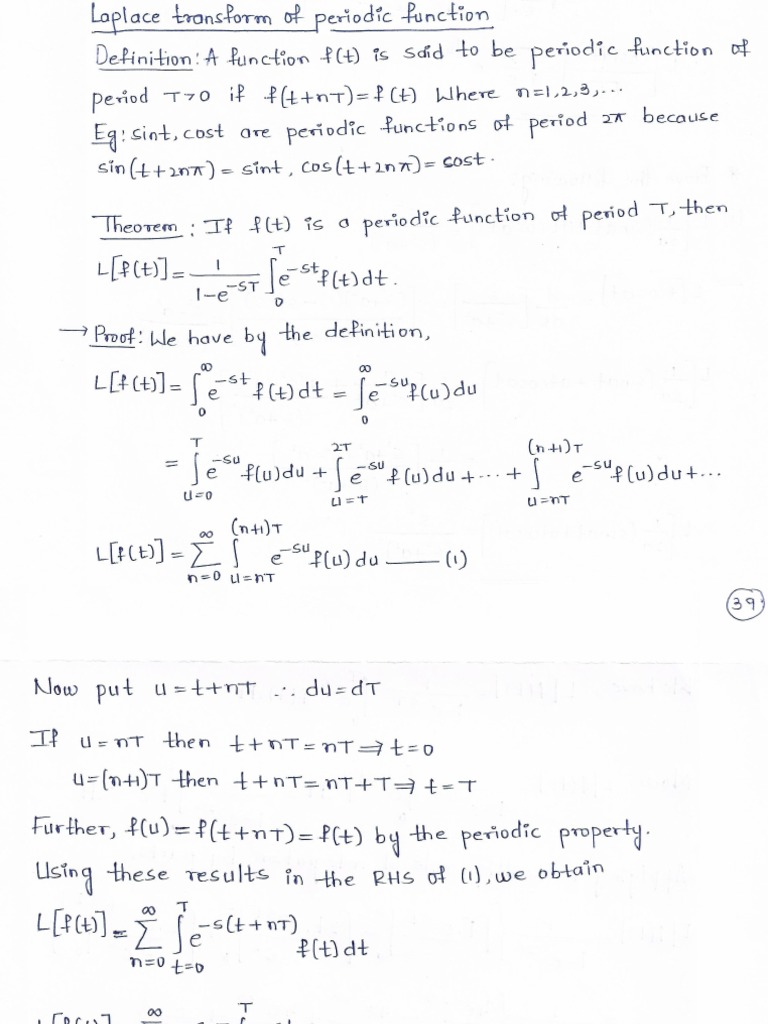 Laplace transform of periodic function
Definition: A function f(t) is said to be periodic function of
period T>0 if f(t+nT)=f(t) Where n=1,2,3,...
Eg: sint, cost are periodic functions of period 2π because
sin(t+2nπ)= sint, cos(t+2nπ)= cost.
Theorem: If f(t) is a periodic function of period T, then
L[f(t)]= 1/(1-e^{-ST}) ∫_0^T e^{-st} f(t)dt.
→ Proof: We have by the definition,
L[f(t)]= ∫_0^∞ e^{-st} f(t)dt = ∫_0^∞ e^{-su} f(u)du
= ∫_{u=0}^{T} e^{-su} f(u)du + ∫_{u=T}^{2T} e^{-su} f(u)du+...+ ∫_{u=nT}^{(n+1)T} e^{-su} f(u)du+...
L[f(t)]= Σ_{n=0}^∞ ∫_{u=nT}^{(n+1)T} e^{-su} f(u) du —— (1)
39
Now put u=t+nT ∴ du=dT
If u=nT then t+nT=nT⇒t=0
u=(n+1)T then t+nT=nT+T⇒t=T
Further, f(u)=f(t+nT)=f(t) by the periodic property.
Using these results in the RHS of (1), we obtain
L[f(t)]= Σ_{n=0}^∞ ∫_{t=0}^T e^{-s(t+nT)} f(t)dt